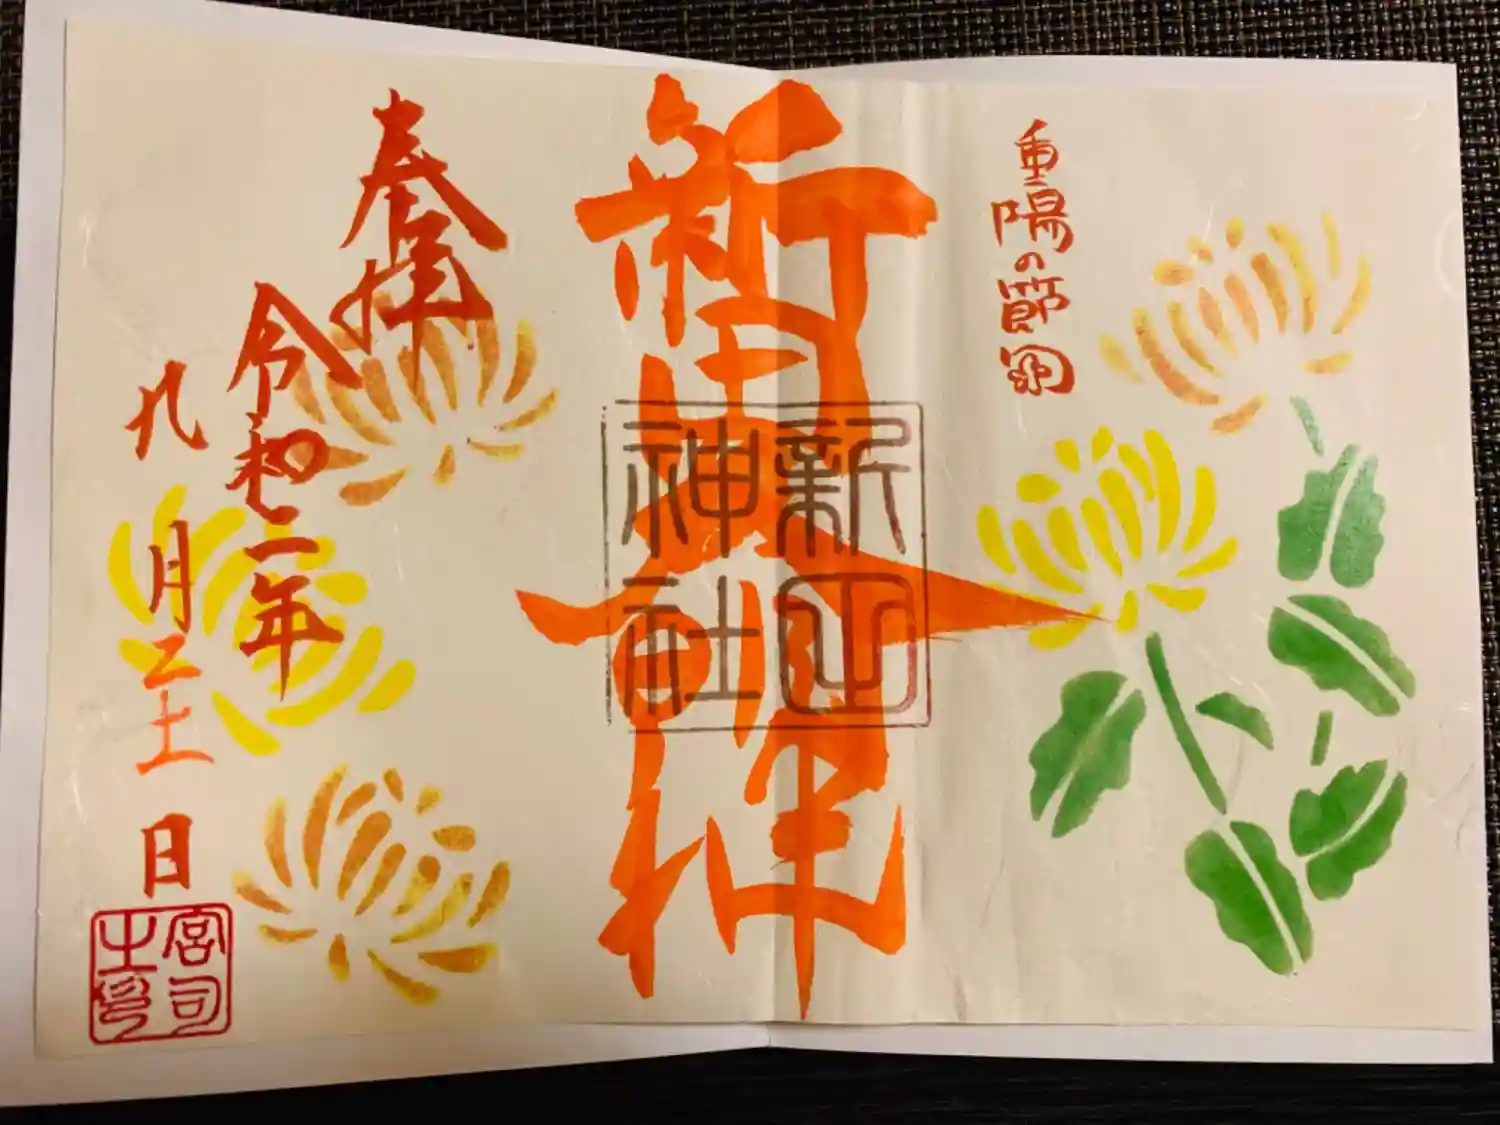 重陽の節句
新山神社
奉拝
令和二年
九月二十一日
宮司之印